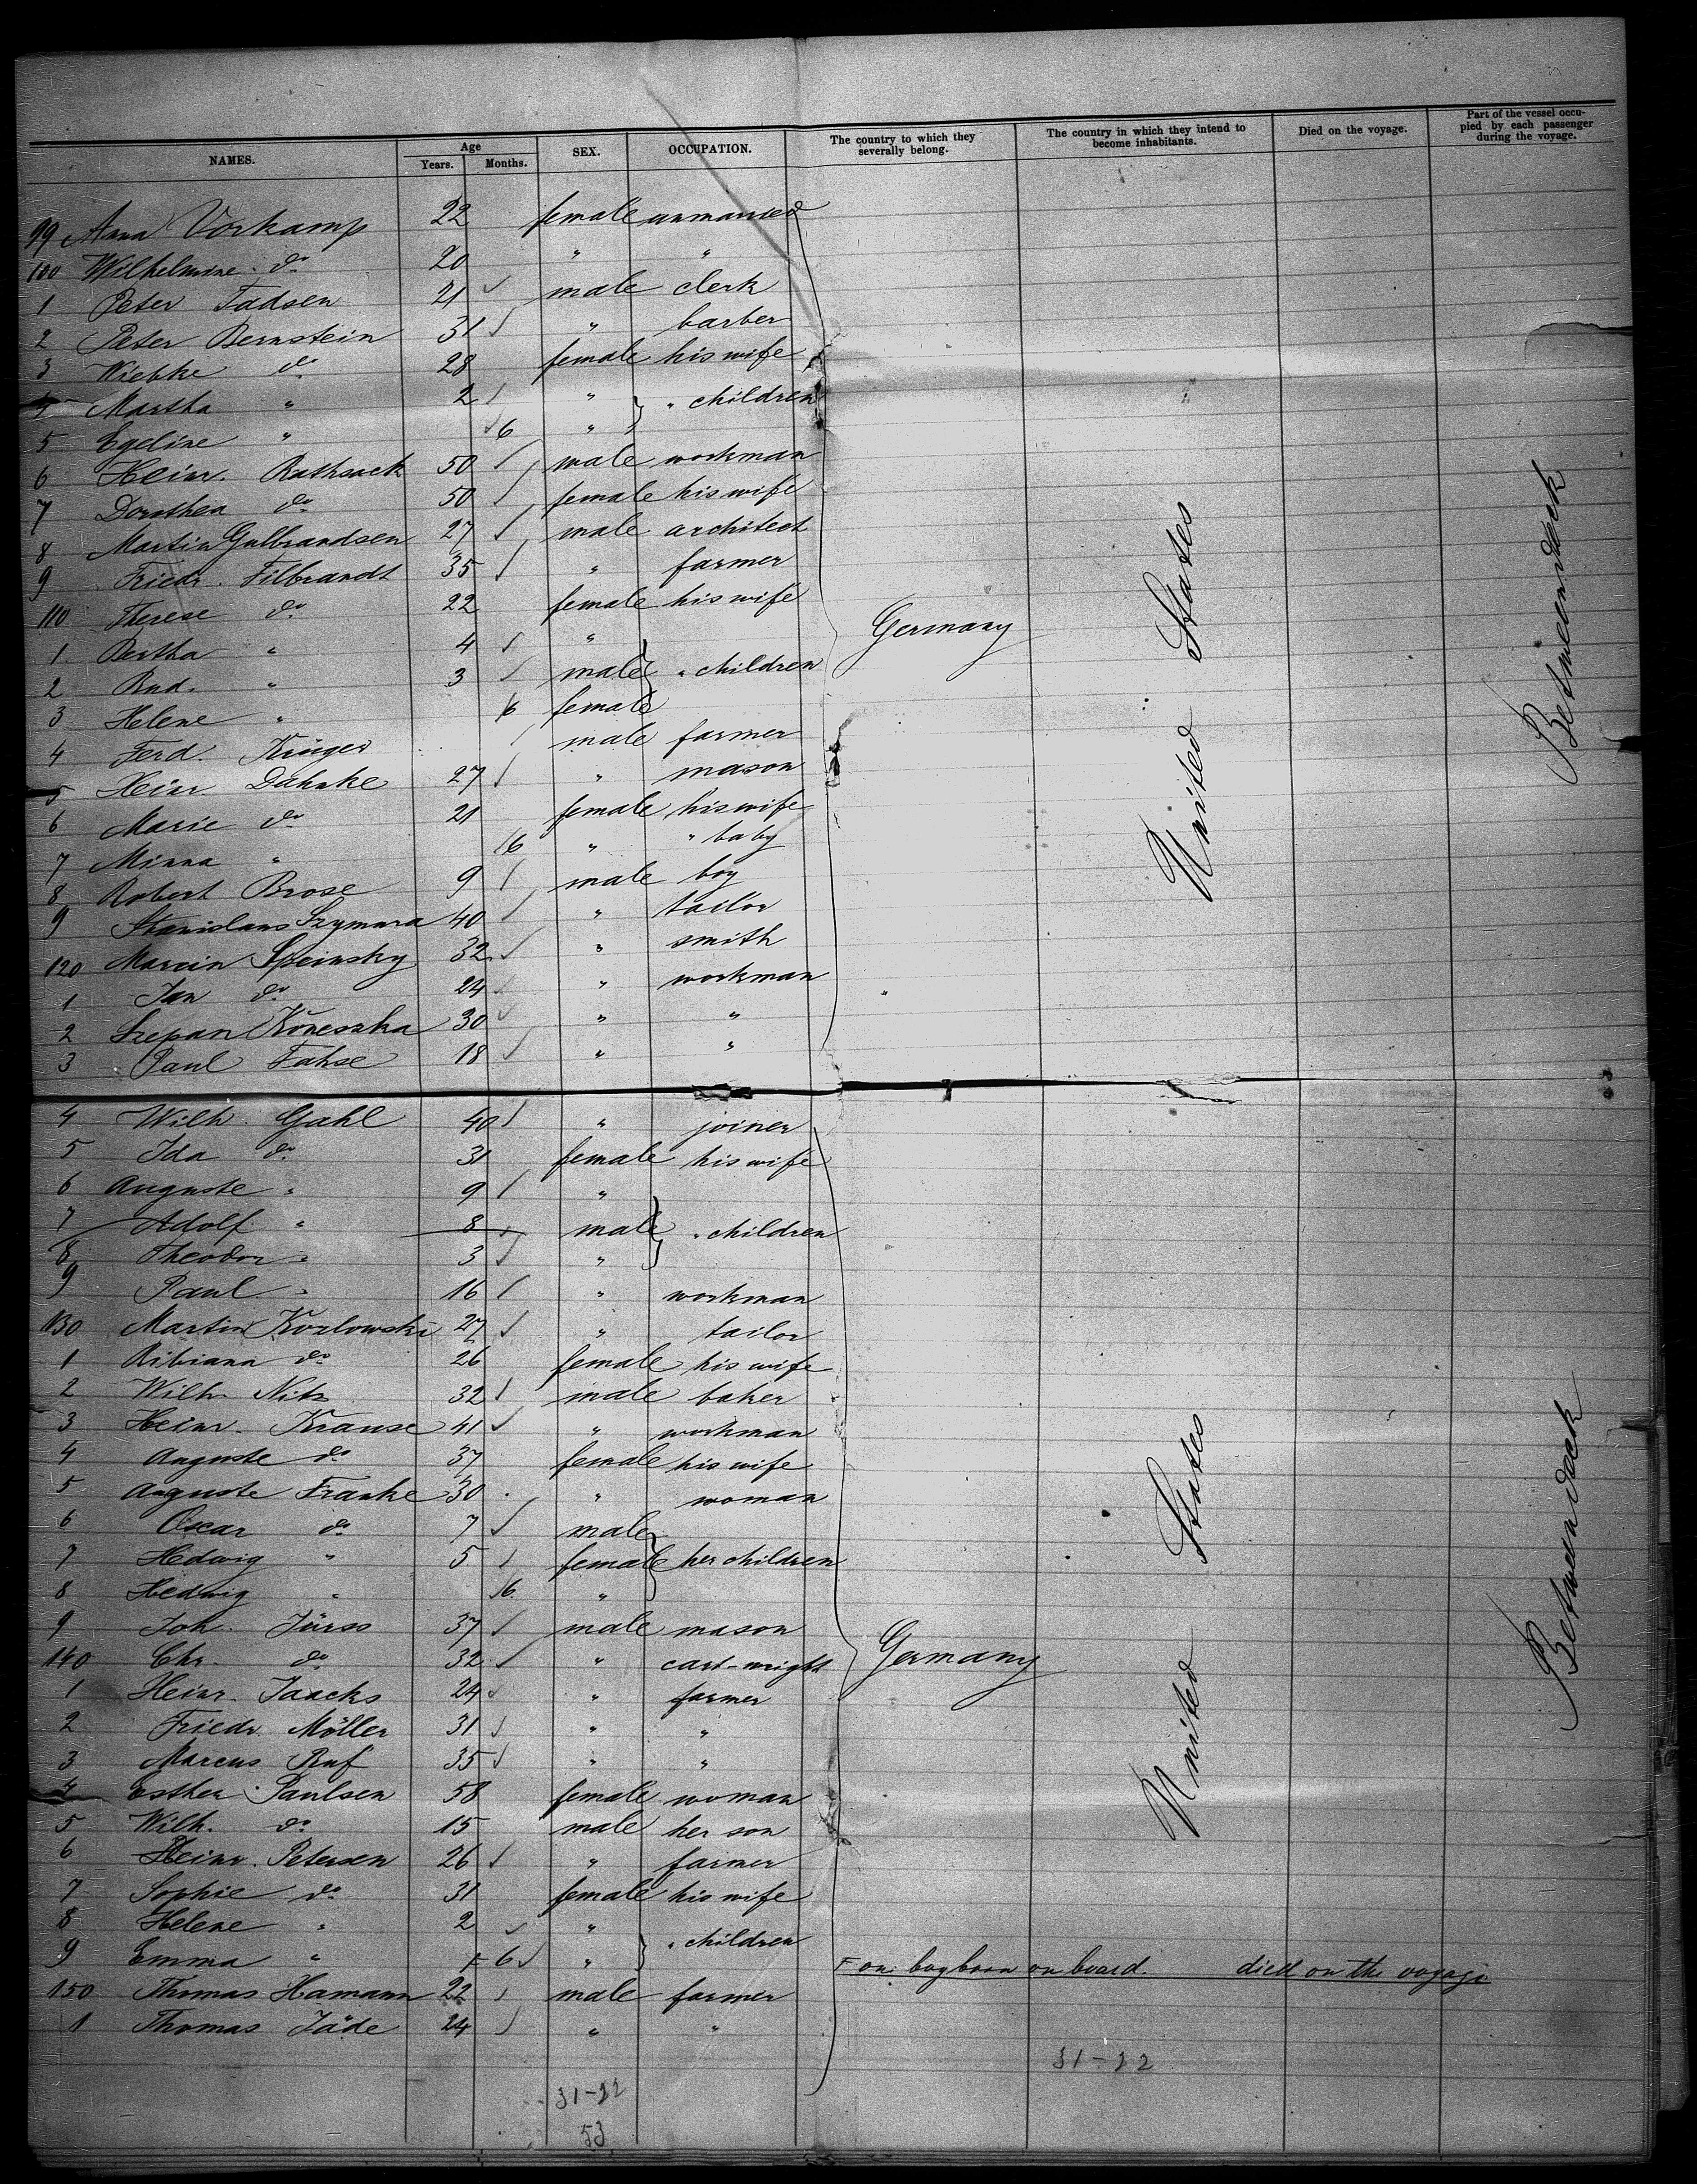 NAMES. Age Years. Months. SEX. OCCUPATION. The country to which they severally belong. The country in which they intend to become inhabitants. Died on the voyage. Part of the vessel occupied by each passenger during the voyage.
99 Anna Vorkamp 22 female unmarried
100 Wilhelmine do 20 " "
1 Peter Tadsen 21 male clerk
2 Peter Bernstein 31 " barber
3 Wiebke do 28 female his wife
4 Martha " 2 " " children
5 Egeline " 6 "
6 Heinr. Rathsack 50 male workman
7 Dorothea do 50 female his wife
8 Martin Gulbrandsen 27 male architect
9 Friedr. Filbrandt 35 " farmer
110 Therese do 22 female his wife
1 Bertha " 4 "
2 Rud. " 3 male " children
3 Helene " 6 female
4 Ferd. Krüger male farmer
5 Heinr. Dahnke 27 " mason
6 Marie do 21 female his wife
7 Minna " 6 " " baby
8 Robert Brose 9 male boy
9 Stanislaus Szymara 40 " tailor
120 Marcin 32 " smith
1 Jan do 24 " workman
2 Szepan 30 " "
3 Paul Fahse 18 " "
Germany United States Betweendeck
4 Wilh. Gahl 40 " joiner
5 Ida do 31 female his wife
6 Auguste " 9 "
7 Adolf " 8 male " children
8 Theodor " 3 "
9 Paul " 16 " workman
130 Martin Kozlowski 27 " tailor
1 Bibiana do 26 female his wife
2 Wilh. Nitz 32 male baker
3 Heinr. Krause 41 " workman
4 Auguste do 37 female his wife
5 Auguste Franke 30 " woman
6 Oscar do 7 male
7 Hedwig " 5 female her children
8 Hedwig " 6 "
9 Joh. Jürss 37 male mason
140 Chr. do 32 " cart-wright
1 Heinr. Jaacks 24 " farmer
2 Friedr. Möller 31 " "
3 Marcus Ruf 35 " "
4 Esther Paulsen 58 female woman
5 Wilh. do 15 male her son
6 Heinr. Petersen 26 " farmer
7 Sophie do 31 female his wife
8 Helene " 2 " " children
9 Emma " 6 "
on boy born on board. died on the voyage.
150 Thomas Hamann 22 male farmer
1 Thomas Jäde 24 " "
Germany United States Betweendeck
31-22
31-22
53